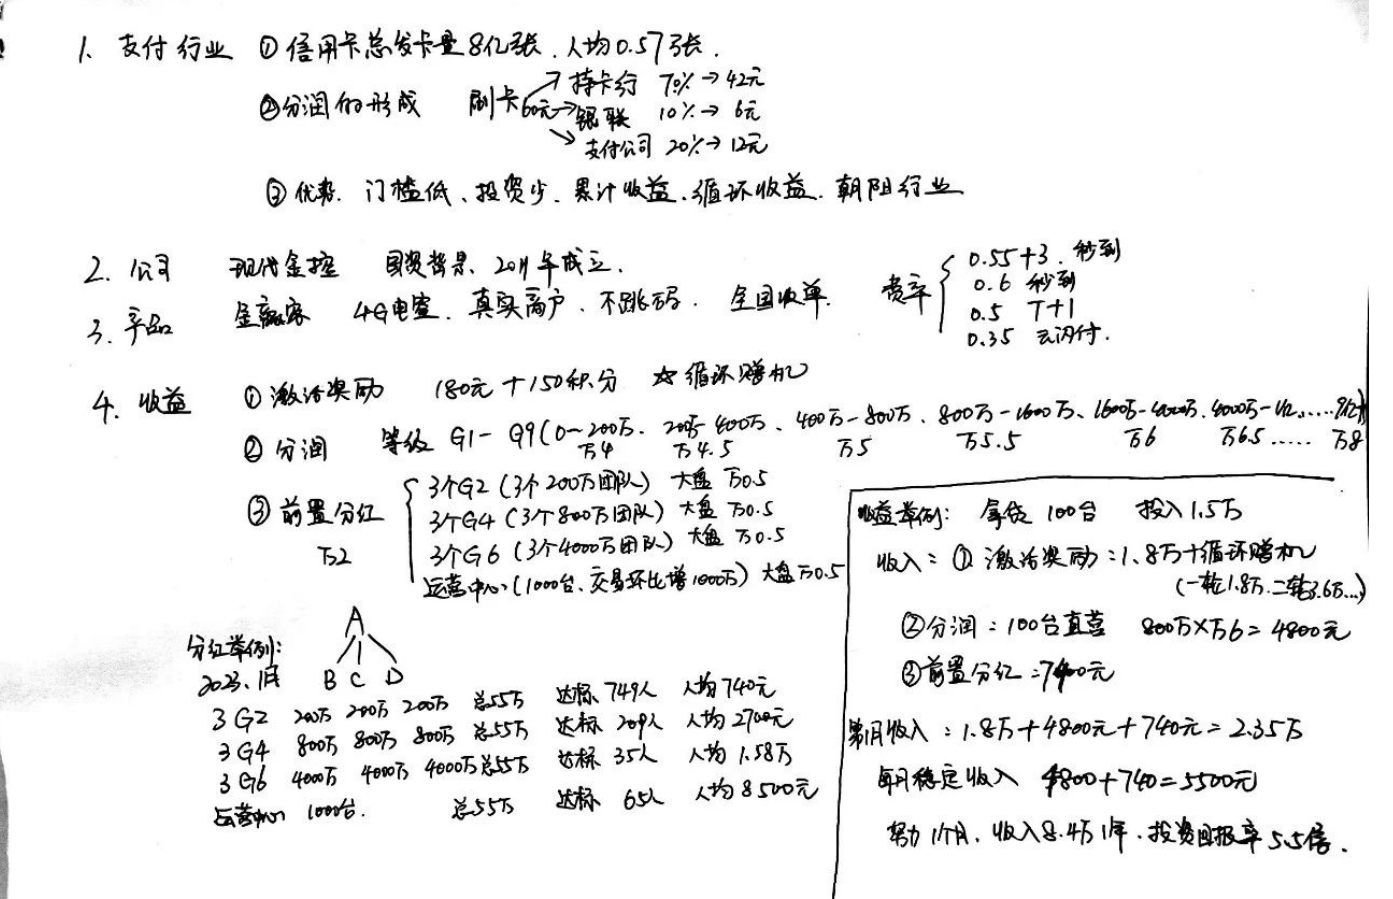 1. 支付行业 ① 信用卡总发卡量8亿张、人均0.57张.
②分润的形成 刷卡60元→ 持卡行 70%→42元
银联 10%→ 6元
支付公司 20%→ 12元
③ 优势. 门槛低、投资少、累计收益、循环收益. 朝阳行业
2. 公司 现代金控 国资背景、2011年成立.
3. 产品 金赢家 4G电签. 真实商户、不跳码. 全国收单. 费率
0.55+3. 秒到
0.6 秒到
0.5 T+1
0.35 云闪付.
4. 收益 ① 激活奖励 180元+150积分 ☆ 循环赠机
② 分润 等级 G1- G9(0~200万. 200万-400万、400万-800万、800万-1600万、1600万-4000万、4000万-1亿......
万4 万4.5 万5 万5.5 万6 万6.5 ..... 万8
③ 前置分红 万2
3个G2(3个200万团队) 大盘 万0.5
3个G4(3个800万团队) 大盘 万0.5
3个G6(3个4000万团队) 大盘 万0.5
运营中心(1000台、交易环比增1000万) 大盘万0.5
分红举例:
2023.1月
A
B C D
3G2 200万 200万 200万 总55万 达标 749人 人均740元
3G4 800万 800万 800万 总55万 达标 209人 人均2700元
3G6 4000万 4000万 4000万 总55万 达标 35人 人均 1.58万
运营中心 1000台. 总55万 达标 65人 人均8500元
收益举例: 拿货 100台 投入1.5万
收入: ① 激活奖励:1.8万+循环赠机
(一轮1.8万.二轮3.6万...)
②分润:100台直营 800万×万6=4800元
③前置分红=740元
第1月收入:1.8万+4800元+740元=2.35万
每月稳定收入 4800+740=5500元
努力1个月、收入8.4万1年.投资回报率5.5倍.